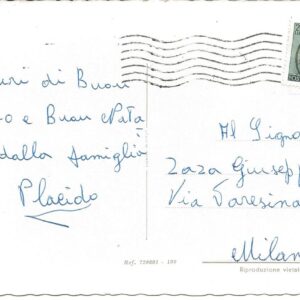 uri di Buon
o e Buon Nata
dalla famiglia
Placido
Al Signo
Zaza Giusepp
Via Varesina
Milan
Ref. 729881 - 199
Riproduzione vietat